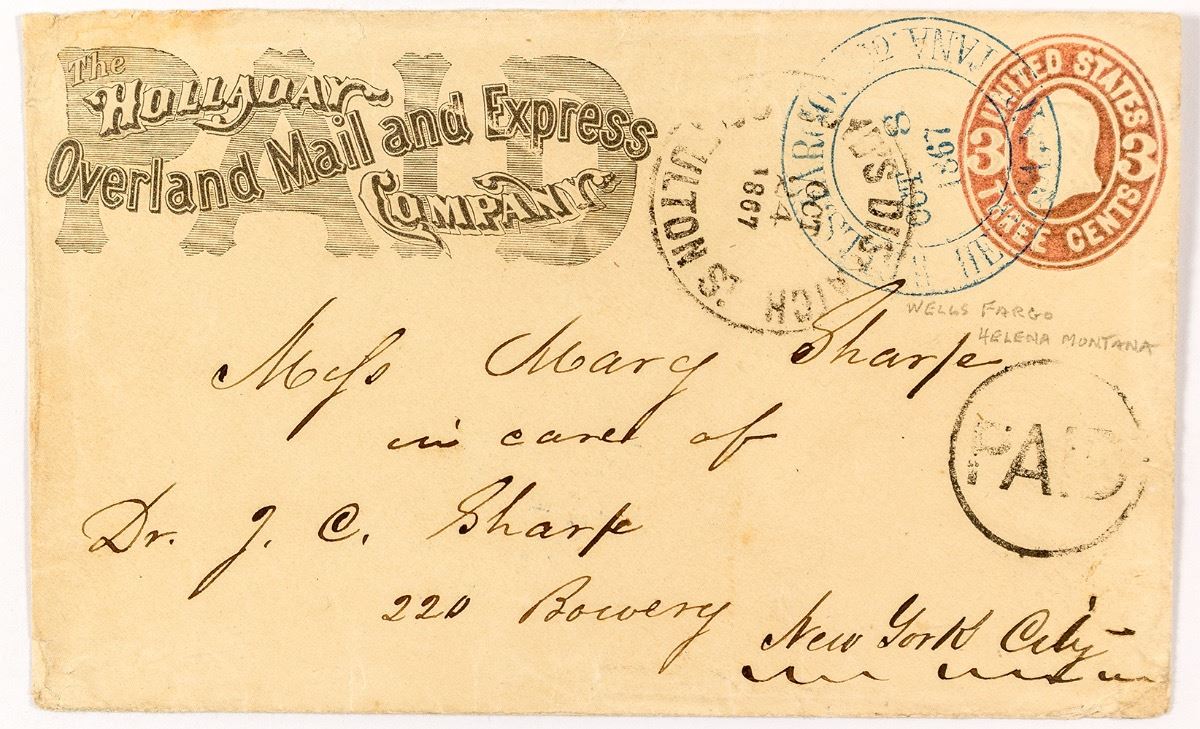 PAID
The
HOLLADAY
Overland Mail and Express
COMPANY
FULTON S'T
OCT
24
1867
OCT
8
1867
UNITED STATES
3 3
THREE CENTS
WELLS FARGO
HELENA MONTANA
Miss Mary Sharpe
in care of
Dr. J. C. Sharpe
220 Bowery
New York City
PAID